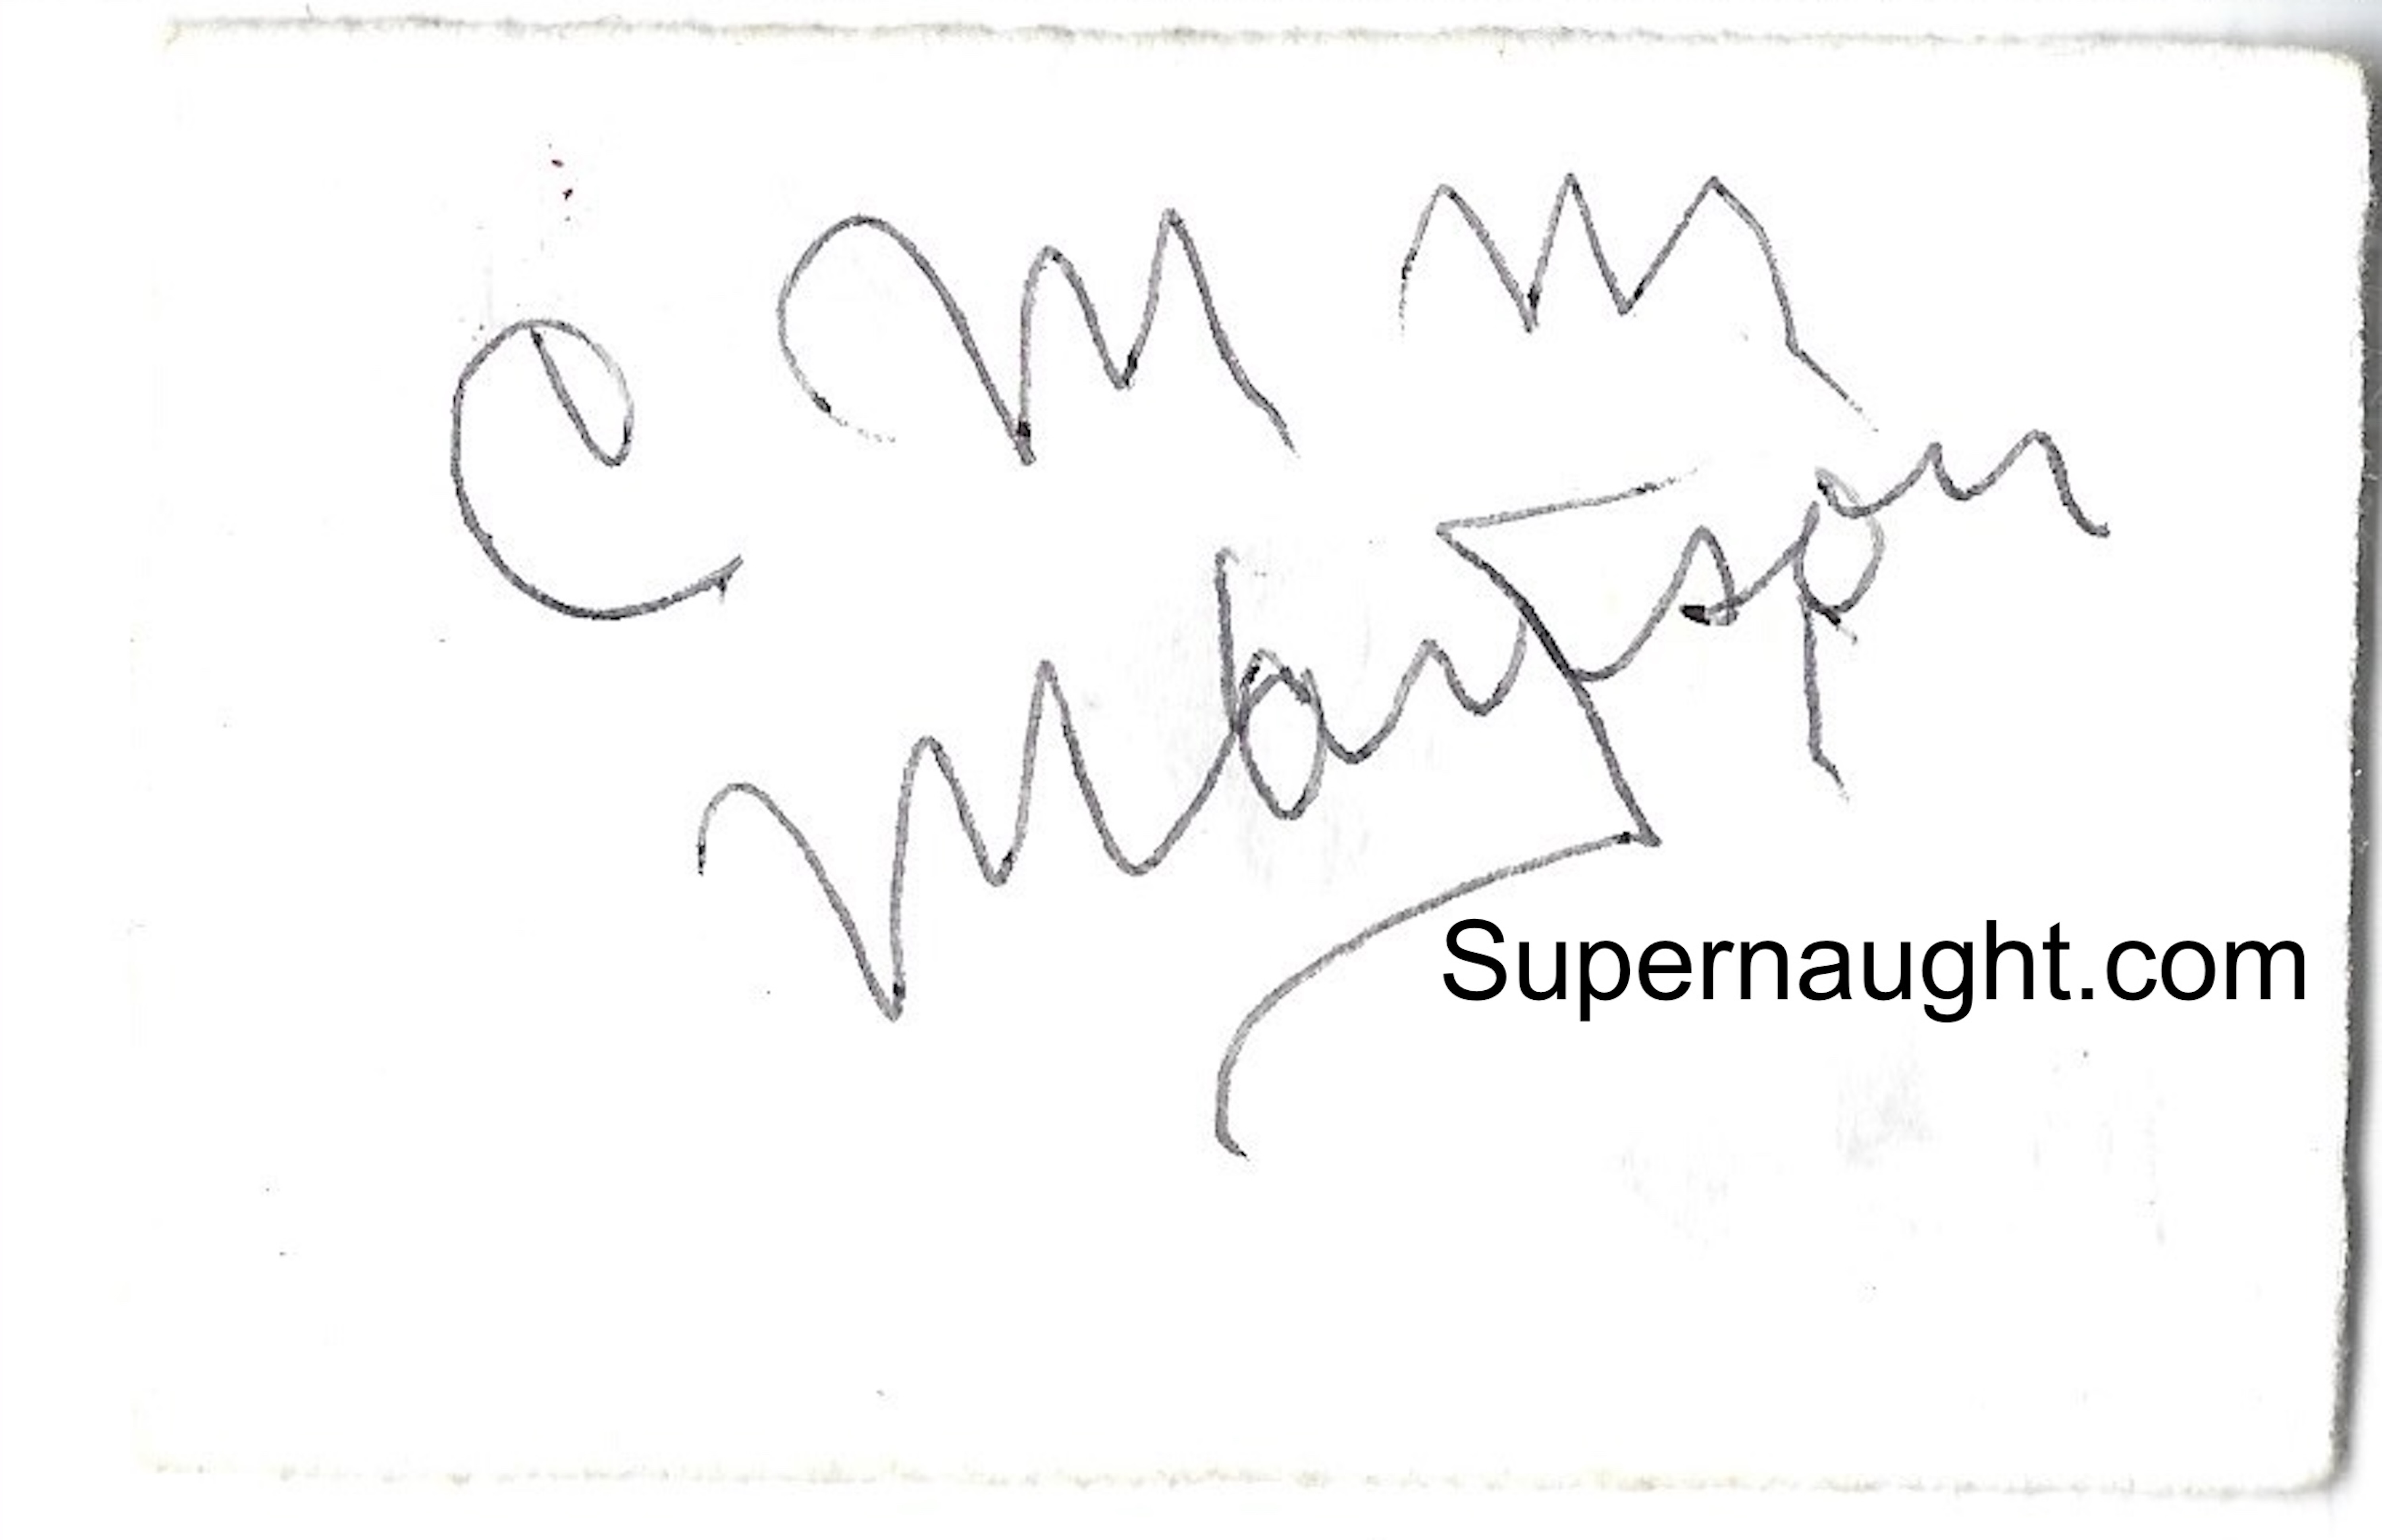 C M M
Manson
Supernaught.com